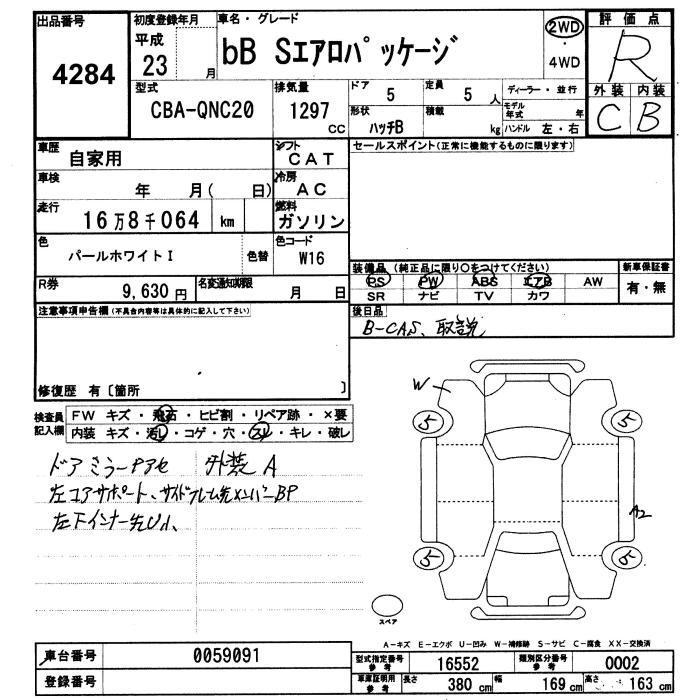 出品番号
4284
初度登録年月
平成
23 月
車名・グレード
bB Sエアロパッケージ
2WD
・
4WD
評価点
R
外装 内装
C B
型式
CBA-QNC20
排気量
1297
CC
ドア 5
定員 5 人
ディーラー・並行
モデル年式 年
形状 ハッチB
積載 kg
ハンドル 左・右
車歴
自家用
シフト
CAT
セールスポイント(正常に機能するものに限ります)
車検
年 月( 日)
冷房
AC
走行
16万8千064 km
燃料
ガソリン
色
パールホワイトI
色替
色コード
W16
装備品 (純正品に限り○をつけてください)
新車保証書
PS PW ABS エアB AW
有・無
SR ナビ TV カワ
R券
9,630円
名変通知期限
月 日
注意事項申告欄(不具合内容等は具体的に記入して下さい)
後日品
B-CAS、取説
修復歴 有〔箇所 〕
検査員
記入欄
FW キズ・飛石・ヒビ割・リペア跡・×要
内装 キズ・汚レ・コゲ・穴・スレ・キレ・破レ
ドアミラーアセ 外装A
左コアサポート、サイドフレーム先メンバーBP
左下インナー先U小
W
5
5
A2
5
5
スペア
A-キズ E-エクボ U-凹み W-補修跡 S-サビ C-腐食 XX-交換済
車台番号
0059091
登録番号
型式指定番号
参考
16552
類別区分番号
参考
0002
車庫証明用
参考
長さ 380 cm
幅 169 cm
高さ 163 cm